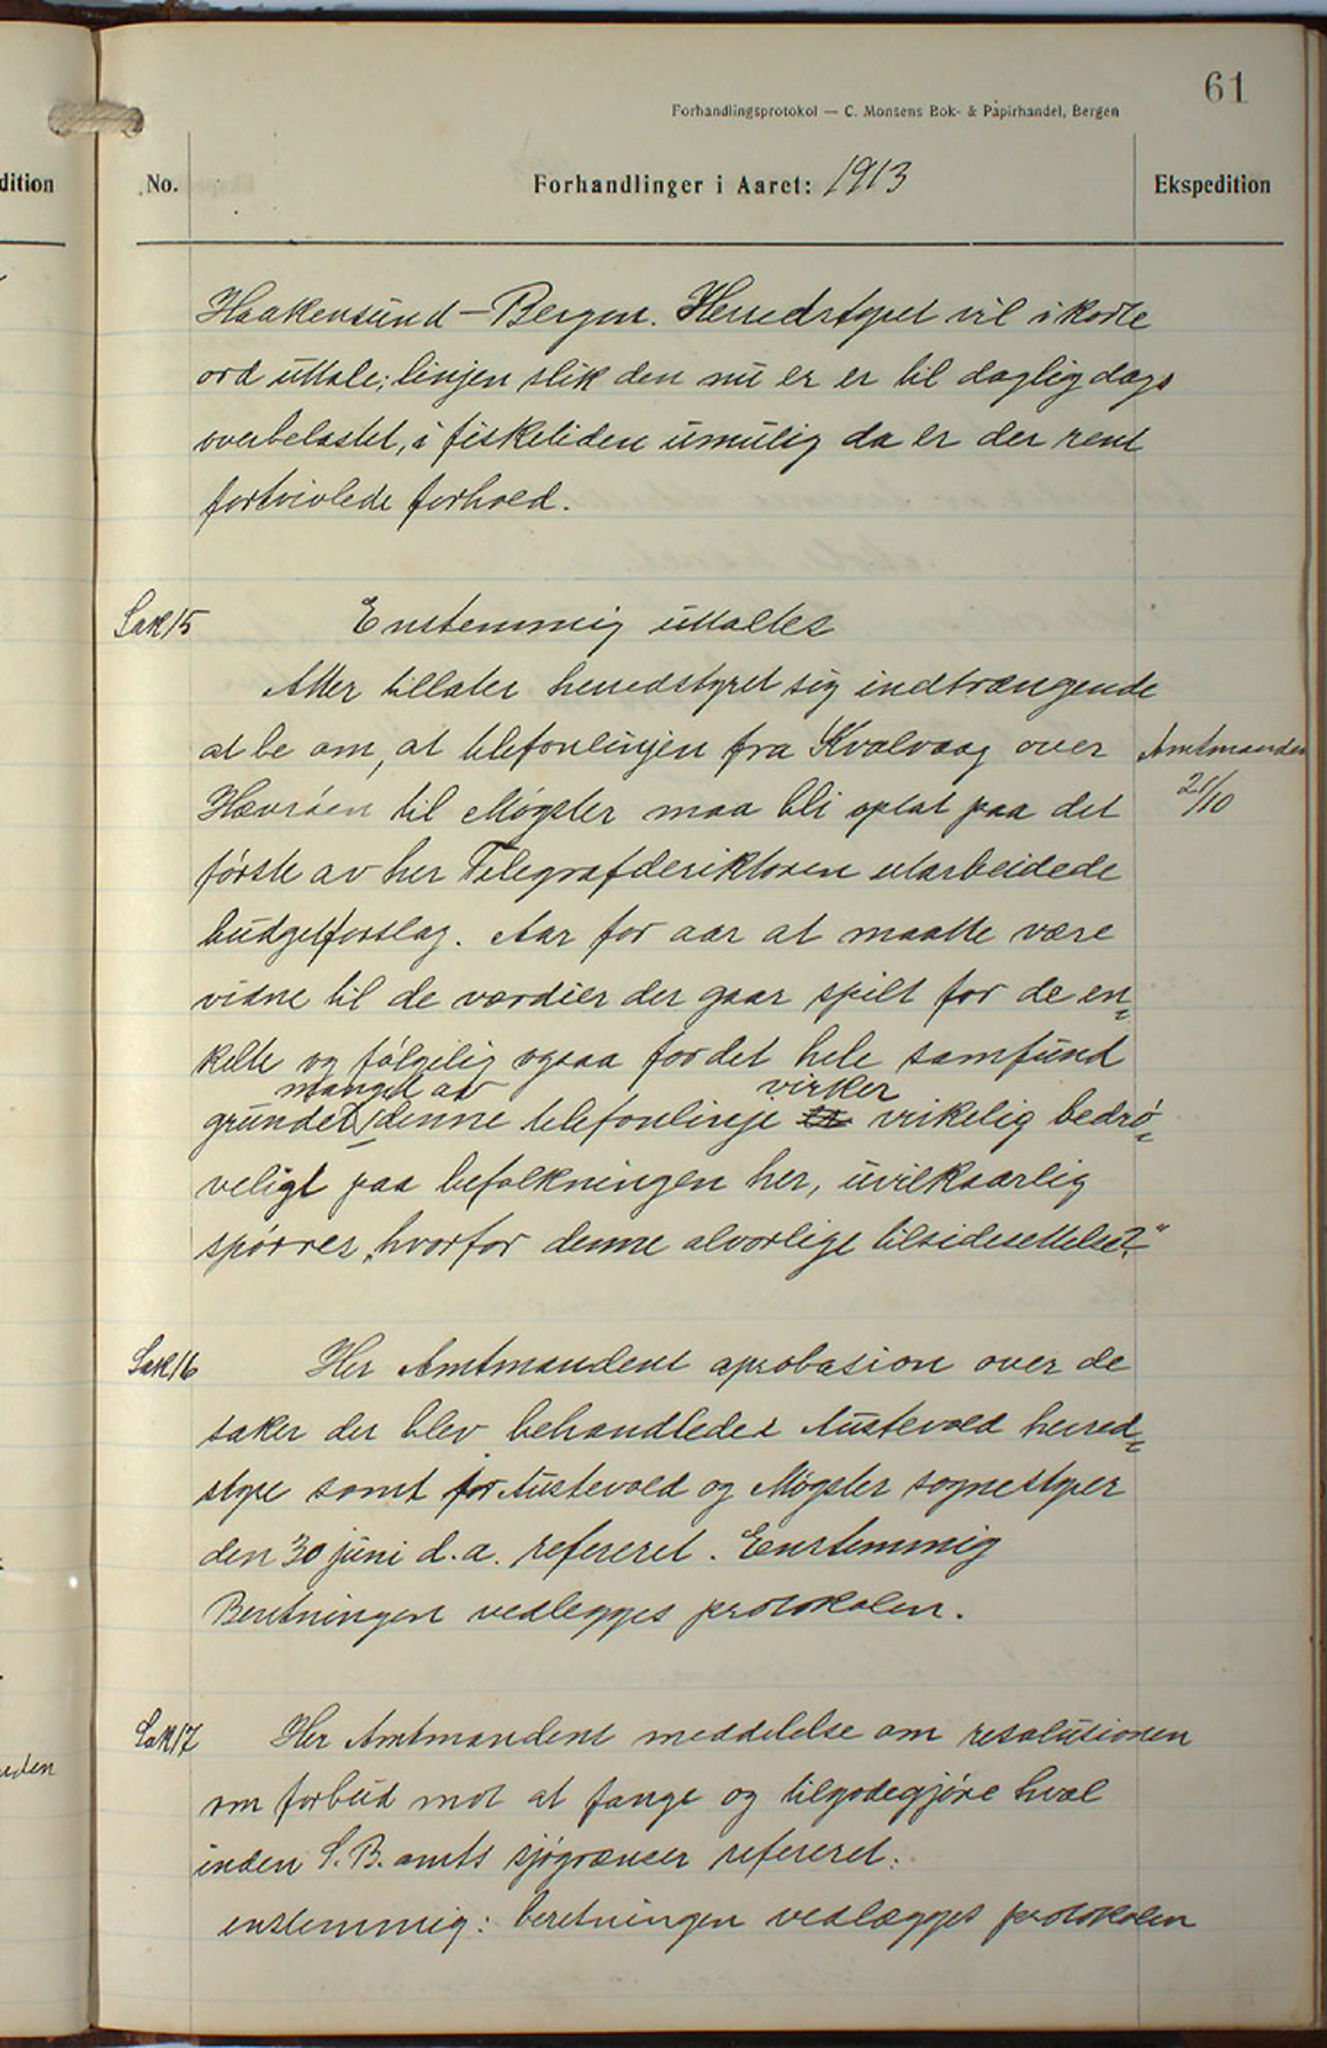 61
Forhandlingsprotokol — C. Monsens Bok- & Papirhandel, Bergen
dition
No.
Forhandlinger i Aaret: 1913
Ekspedition
Haakensund - Bergen. Herredstyret vil i korte
ord uttale: linjen slik den nu er er til daglig dags
overbelastet, i fisketiden umulig da er der rent
fortvivlede forhold.
Sak 15
Enstemmig uttaltes
Atter tillater herredstyret sig indtrængende
at be om, at telefonlinjen fra Kvalvaag over
Amtmanden
21/10
Hævrøen til Møgster maa bli optat paa det
første av her Telegrafderiktøren utarbeidede
budgetforslag. Aar for aar at maatte være
vidne til de værdier der gaar spilt for de en=
kelte og følgelig ogsaa for det hele samfund
mangel av virker
grundet denne telefonlinje er virkelig bedrø=
veligt paa befolkningen her, uvilkaarlig
spørres „hvorfor denne alvorlige tilsidesettelse?“
Sak 16
Her Amtmandens aprobasion over de
saker der blev behandlede i Austevold herred=
styre samt for Austevold og Møgster sognestyrer
den 30 juni d.a. refereret. Enstemmig
Beretningen vedlegges protokolen.
Sak 17
Her Amtmandens meddelelse om resolusionen
om forbud mot at fange og tilgodegjøre hval
inden S.B. amts sjøgrænser refereret.
enstemmig: beretningen vedlægges protokolen